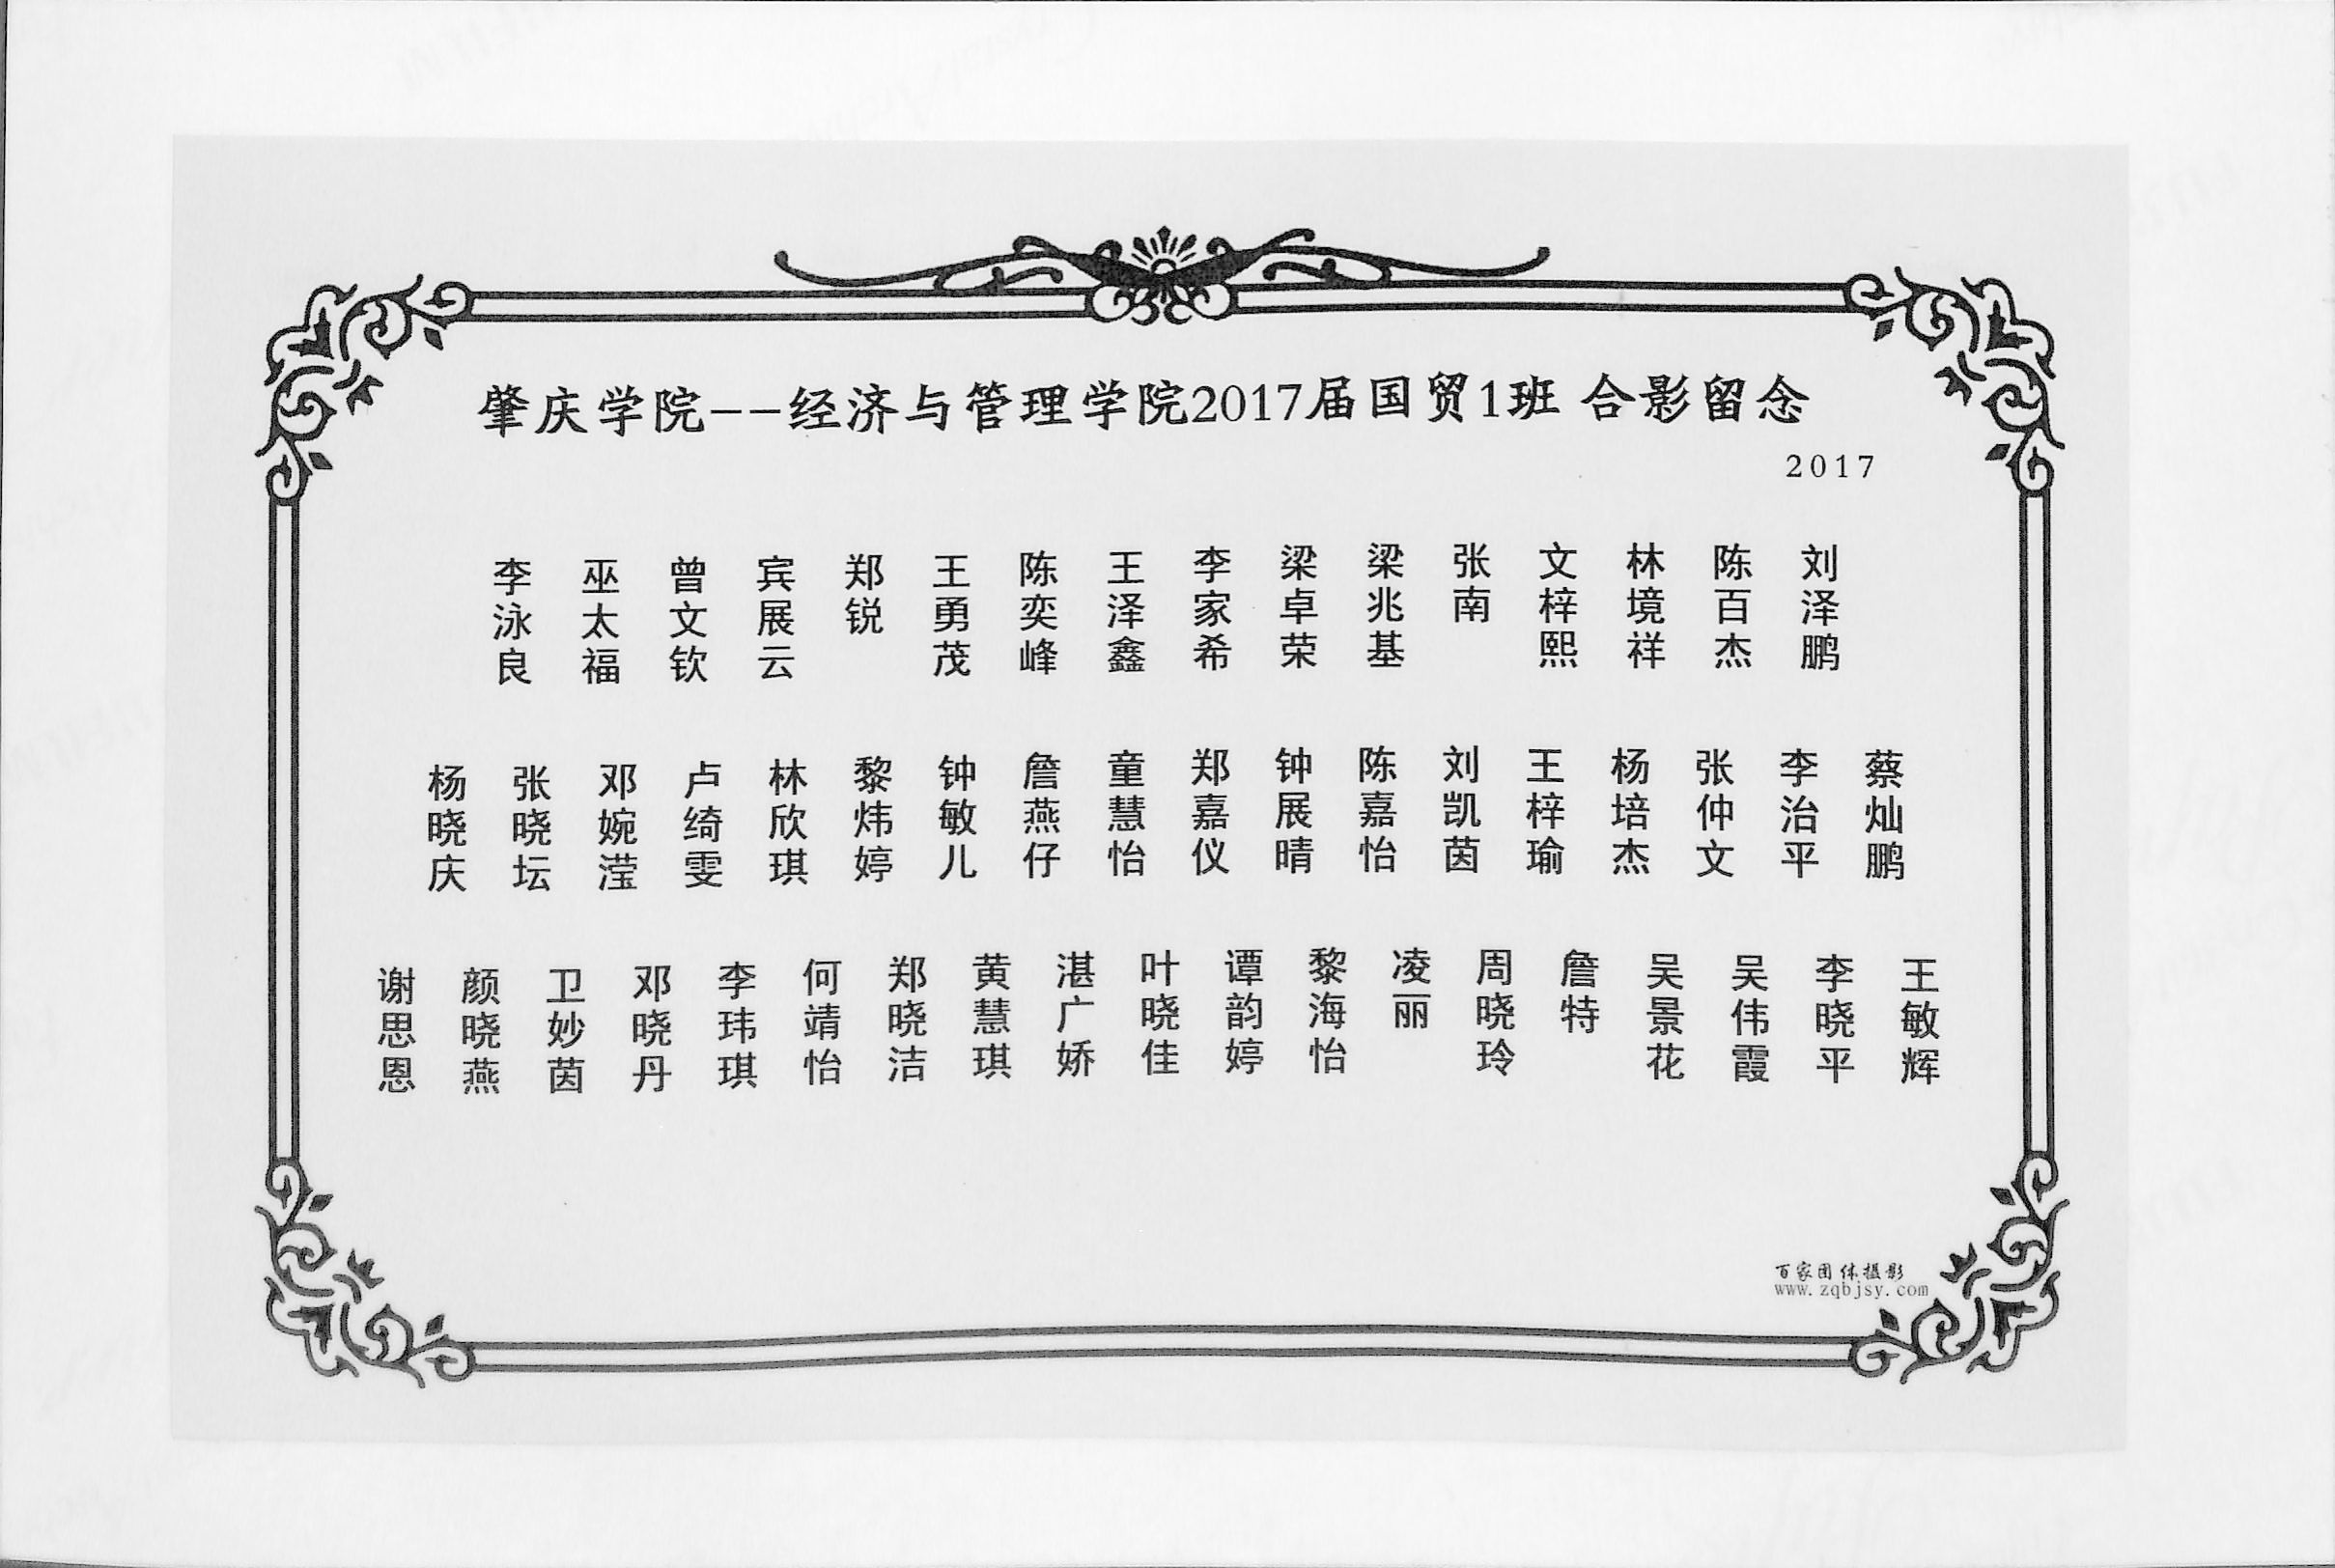 肇庆学院--经济与管理学院2017届国贸1班 合影留念
2017
李泳良 巫太福 曾文钦 宾展云 郑锐 王勇茂 陈奕峰 王泽鑫 李家希 梁卓荣 梁兆基 张南 文梓熙 林境祥 陈百杰 刘泽鹏
杨晓庆 张晓坛 邓婉滢 卢绮雯 林欣琪 黎炜婷 钟敏儿 詹燕仔 童慧怡 郑嘉仪 钟展晴 陈嘉怡 刘凯茵 王梓瑜 杨培杰 张仲文 李治平 蔡灿鹏
谢思恩 颜晓燕 卫妙茵 邓晓丹 李玮琪 何靖怡 郑晓洁 黄慧琪 湛广娇 叶晓佳 谭韵婷 黎海怡 凌丽 周晓玲 詹特 吴景花 吴伟霞 李晓平 王敏辉
百家团体摄影
www.zqbjsy.com